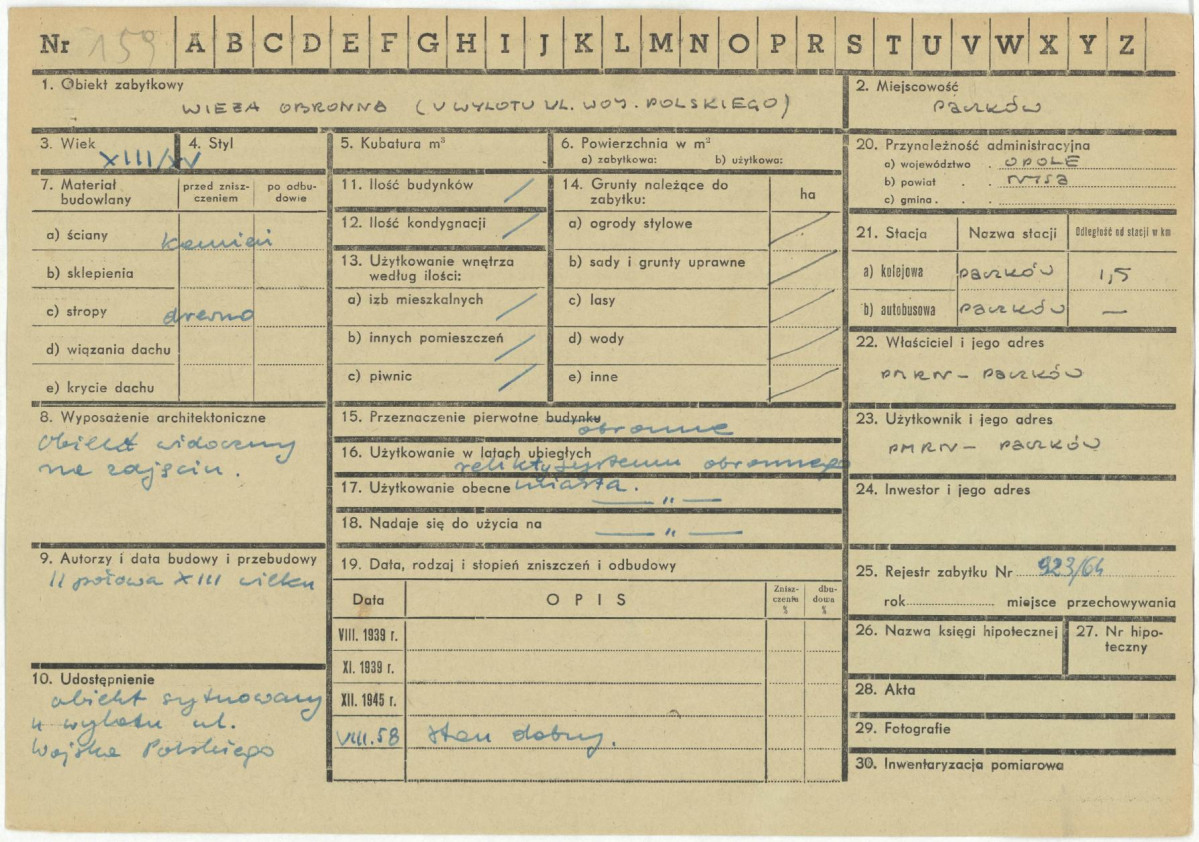 Nr 159 A B C D E F G H I J K L M N O P R S T U V W X Y Z
1. Obiekt zabytkowy
WIEŻA OBRONNA (U WYLOTU UL. WOJ. POLSKIEGO)
2. Miejscowość
PACZKÓW
3. Wiek
XIII/XV
4. Styl
5. Kubatura m³
6. Powierzchnia w m²
a) zabytkowa: b) użytkowa:
7. Materiał budowlany
przed zniszczeniem
po odbudowie
a) ściany kamień
b) sklepienia
c) stropy drewno
d) wiązania dachu
e) krycie dachu
8. Wyposażenie architektoniczne
Obiekt widoczny
na zdjęciu.
9. Autorzy i data budowy i przebudowy
II połowa XIII wieku
10. Udostępnienie
obiekt sytuowany
u wylotu ul.
Wojska Polskiego
11. Ilość budynków /
12. Ilość kondygnacji /
13. Użytkowanie wnętrza
według ilości:
a) izb mieszkalnych /
b) innych pomieszczeń /
c) piwnic /
14. Grunty należące do
zabytku:
ha
a) ogrody stylowe /
b) sady i grunty uprawne /
c) lasy /
d) wody /
e) inne /
15. Przeznaczenie pierwotne budynku
obronne
16. Użytkowanie w latach ubiegłych
relikty systemu obronnego
17. Użytkowanie obecne miasta.
— " —
18. Nadaje się do użycia na — " —
19. Data, rodzaj i stopień zniszczeń i odbudowy
Data OPIS Zniszczenia % dbudowa %
VIII. 1939 r.
XI. 1939 r.
XII. 1945 r.
VIII.58 stan dobry.
20. Przynależność administracyjna
a) województwo . OPOLE
b) powiat . . NYSA
c) gmina . .
21. Stacja Nazwa stacji Odległość od stacji w km
a) kolejowa PACZKÓW 1,5
b) autobusowa PACZKÓW —
22. Właściciel i jego adres
PMRN – PACZKÓW
23. Użytkownik i jego adres
PMRN – PACZKÓW
24. Inwestor i jego adres
25. Rejestr zabytku Nr 923/64
rok miejsce przechowywania
26. Nazwa księgi hipotecznej
27. Nr hipoteczny
28. Akta
29. Fotografie
30. Inwentaryzacja pomiarowa